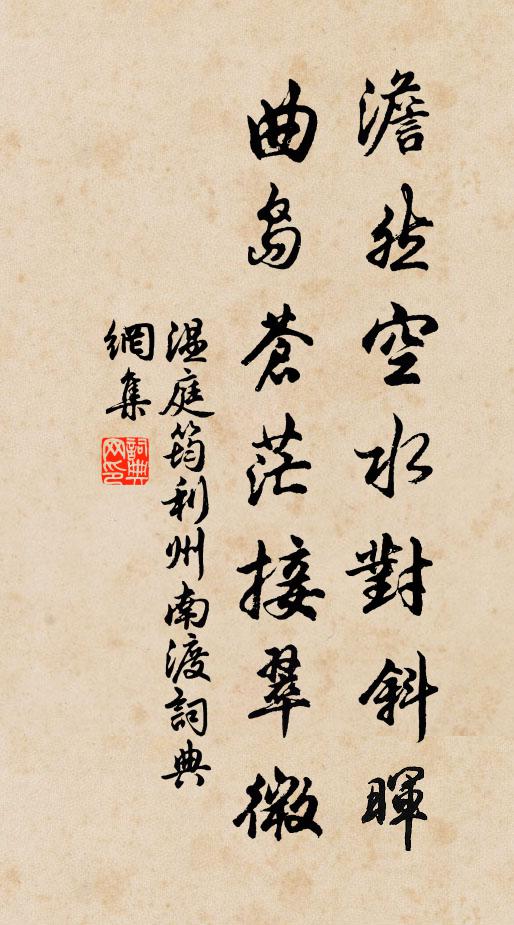 澹然空水對斜暉
曲島蒼茫接翠微
溫庭筠利州南渡詞典
網集
詞典
网印